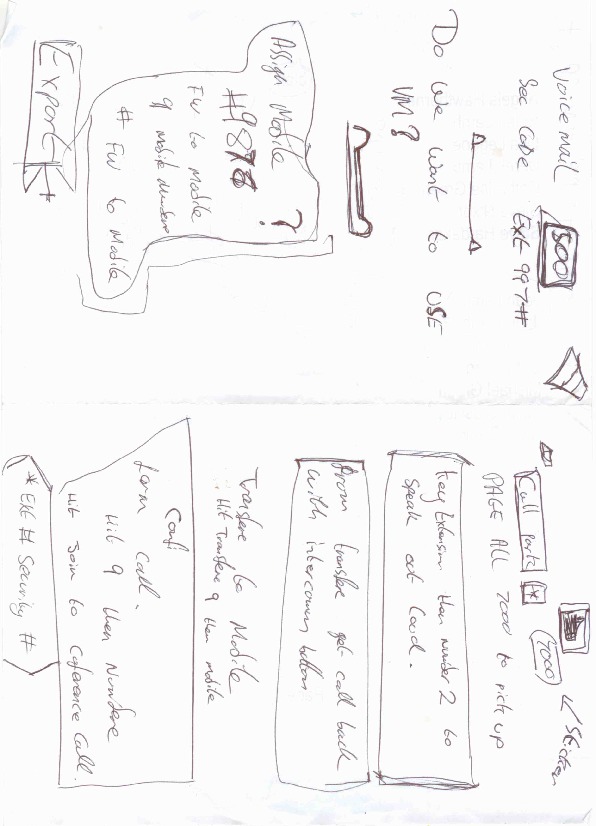 Voicemail 500
Sec Code Ext 997#
Do We Want to USE
VM?
Assign Mobile
#9878 ?
FW to Mobile
9 Mobile Number
# FW to Mobile
Export
Sticker
Call park * 7000
PAGE ALL 7000 to pick up
Key Extension then number 2 to
Speak out loud.
From transfere get call back
with intercomm button
Transfere to Mobile
Hit Transfere 9 then mobile
Conf
Form call.
Hit 9 then Numbere
Hit Join to Coference Call.
* EXt # Security #